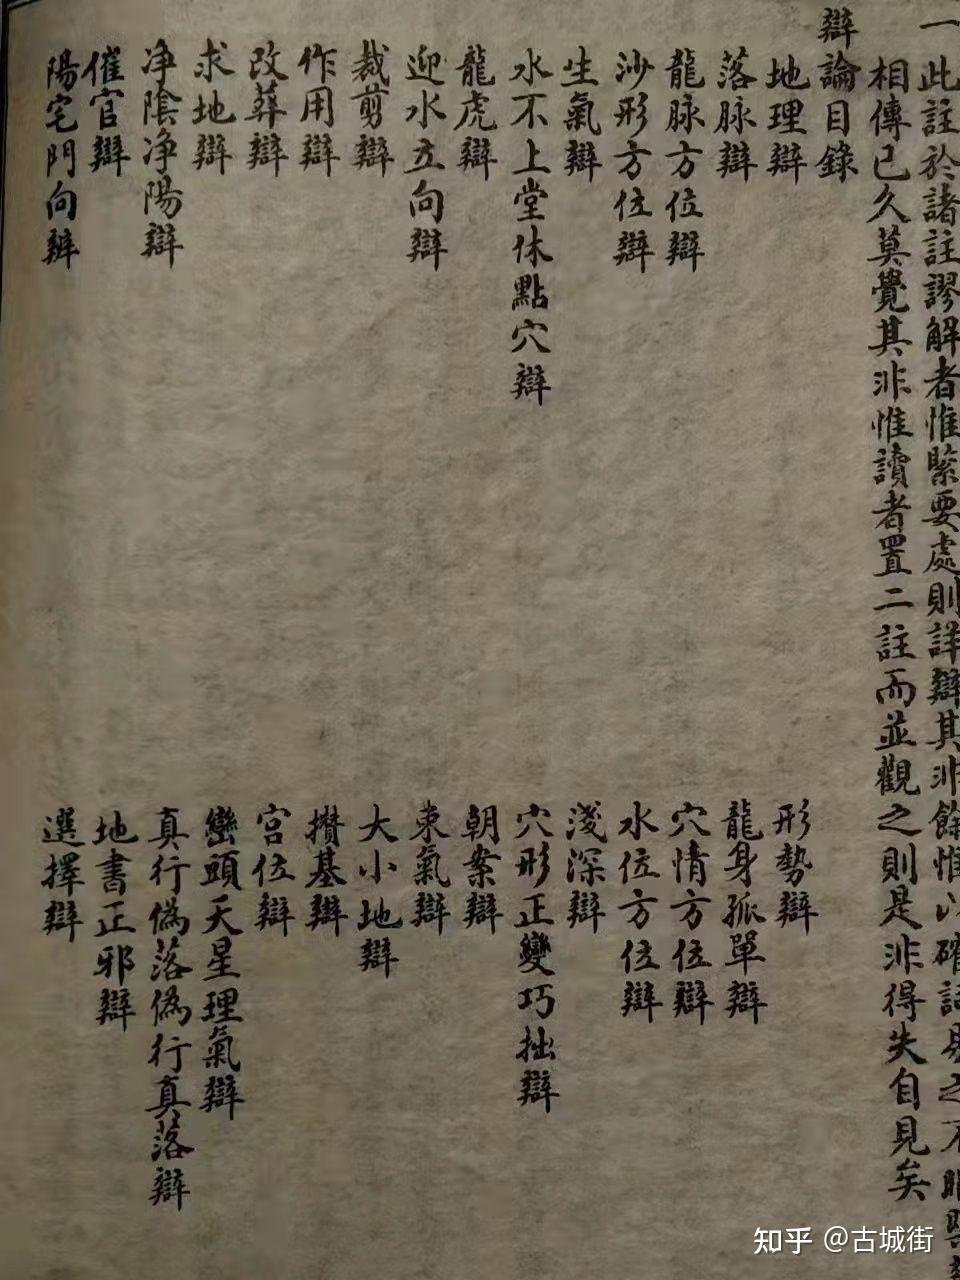 一此註於諸註謬解者惟緊要處則詳辯其非餘惟以確註易之不暇
相傳已久莫覺其非惟讀者置二註而並觀之則是非得失自見矣
辯論目錄
地理辯
形勢辯
落脉辯
龍身孤單辯
龍脉方位辯
穴情方位辯
沙形方位辯
水位方位辯
生氣辯
淺深辯
水不上堂休點穴辯
穴形正變巧拙辯
龍虎辯
朝案辯
迎水立向辯
束氣辯
裁剪辯
大小地辯
作用辯
攢基辯
改葬辯
宮位辯
求地辯
巒頭天星理氣辯
净陰净陽辯
真行偽落偽行真落辯
催官辯
地書正邪辯
陽宅門向辨
選擇辯
知乎 @古城街